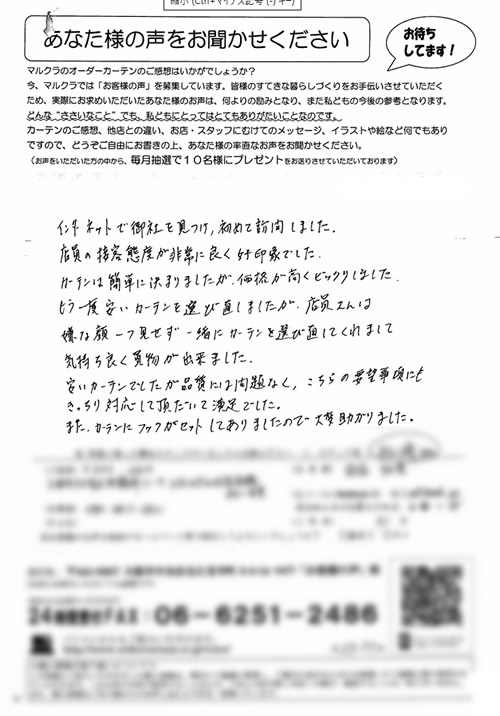 縮小 (Ctrl+マイナス記号 (-) キー)
あなた様の声をお聞かせください
お待ち
してます!
マルクラのオーダーカーテンのご感想はいかがでしょうか?
今、マルクラでは「お客様の声」を募集しています。皆様のすてきな暮らしづくりをお手伝いさせていただく
ため、実際にお求めいただいたあなた様のお声は、何よりの励みとなり、また私どもの今後の参考となります。
どんな"ささいなこと"でも、私どもにとってはとてもありがたいことなのです。
カーテンのご感想、他店との違い、お店・スタッフにむけてのメッセージ、イラストや絵など何でもあり
ですので、どうぞご自由にお書きの上、あなた様の率直なお声をお聞かせください。
(お声をいただいた方の中から、毎月抽選で10名様にプレゼントをお送りさせていただいております)
インターネットで御社を見つけ、初めて訪問しました。
店員の接客態度が非常に良く好印象でした。
カーテンは簡単に決まりましたが、価格が高くビックリしました。
もう一度安いカーテンを選び直しましたが、店員さんは
嫌な顔一つ見せず一緒にカーテンを選び直してくれまして
気持ち良く買物が出来ました。
安いカーテンでしたが品質には問題なく、こちらの要望事項にも
きっちり対応して頂だいて満足でした。
また、カーテンにフックがセットしてありましたので大変助かりました。
24時間受付FAX:06-6251-2486